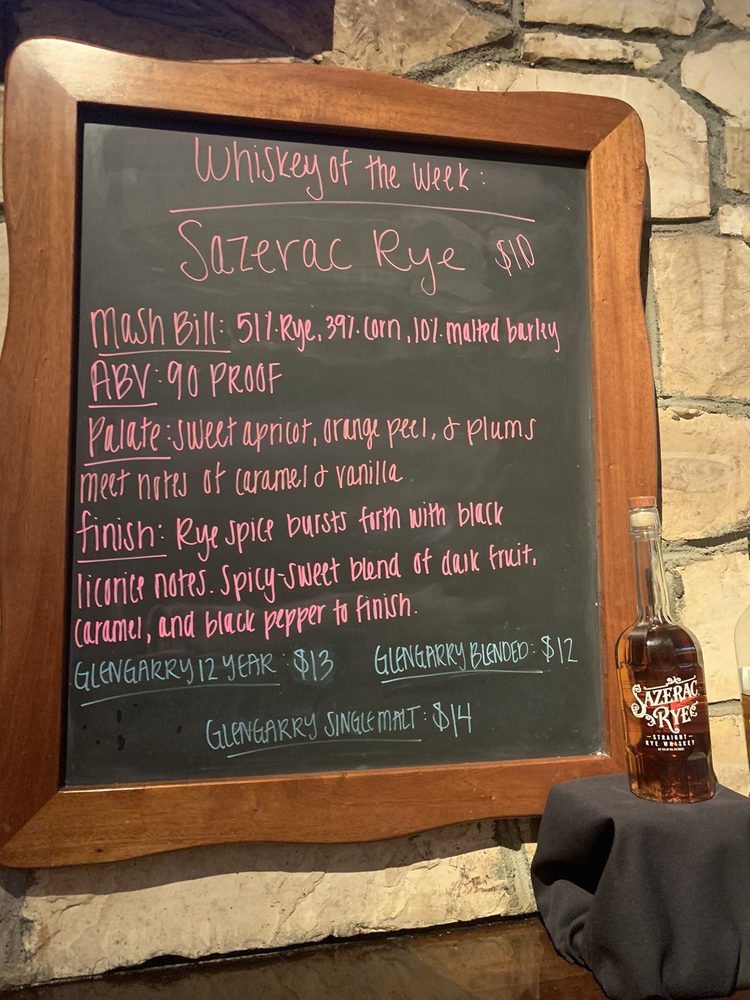 Whiskey of the Week:
Sazerac Rye $10
Mash Bill: 51% Rye, 39% Corn, 10% malted barley
ABV: 90 PROOF
Palate: sweet apricot, orange peel, & plums
meet notes of caramel & vanilla
finish: Rye spice bursts forth with black
licorice notes. Spicy-sweet blend of dark fruit,
caramel, and black pepper to finish.
GLENGARRY 12 YEAR: $13 GLENGARRY BLENDED: $12
GLENGARRY SINGLE MALT: $14
SAZERAC
RYE
STRAIGHT
RYE WHISKEY